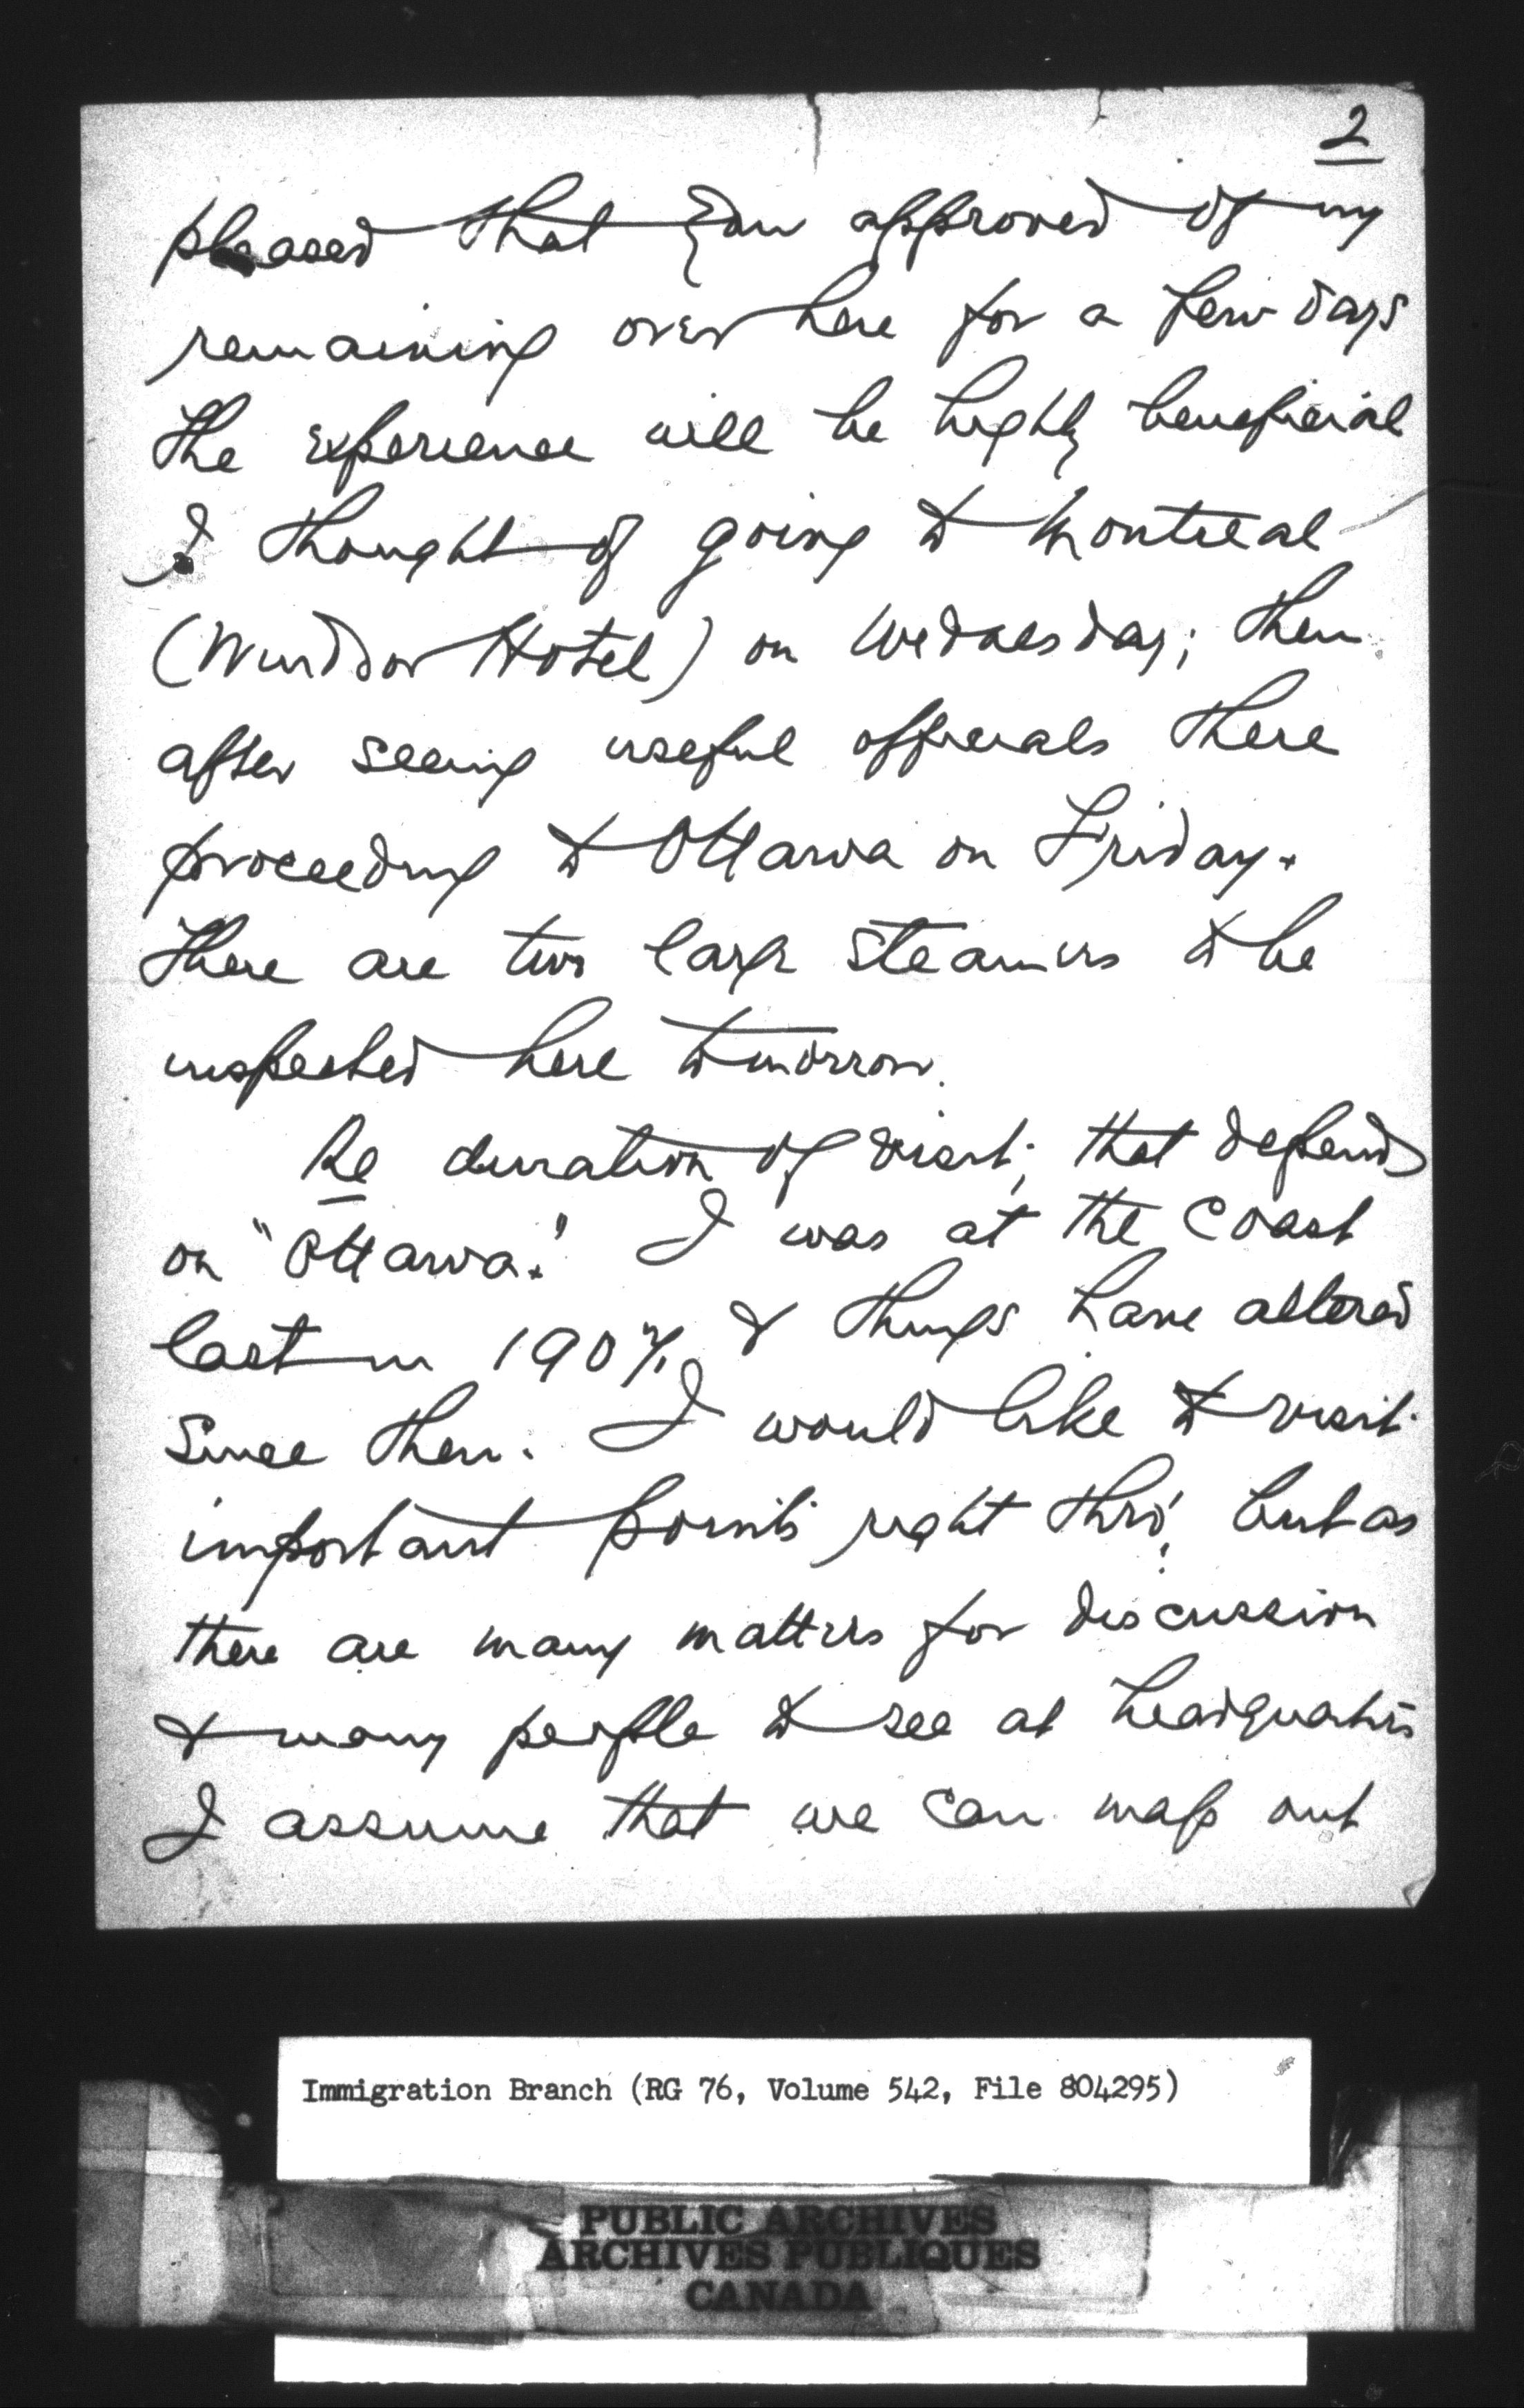 2
pleased that you approved of my
remaining over here for a few days
The experience will be highly beneficial
I thought of going to Montreal
(Windsor Hotel) on Wednesday; then
after seeing useful officials there
proceeding to Ottawa on Friday.
There are two large steamers to be
inspected here tomorrow.
Re duration of visit; that depends
on "Ottawa." I was at the Coast
last in 1907, & things have altered
since then. I would like to visit
important points right thro', but as
there are many matters for discussion
& many people to see at headquarters
I assume that we can map out
Immigration Branch (RG 76, Volume 542, File 804295)
PUBLIC ARCHIVES
ARCHIVES PUBLIQUES
CANADA